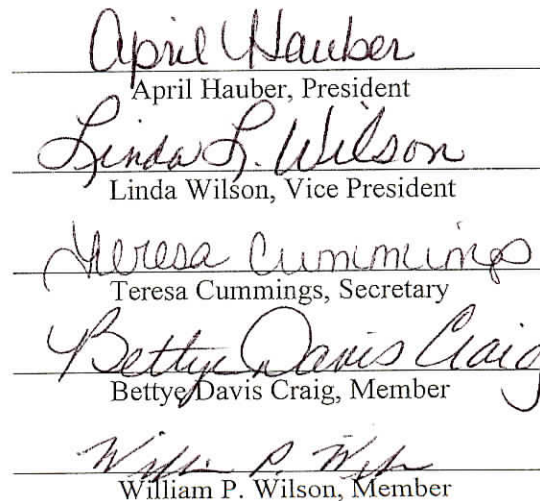 April Hauber
April Hauber, President
Linda L. Wilson
Linda Wilson, Vice President
Teresa Cummings
Teresa Cummings, Secretary
Bettye Davis Craig
Bettye Davis Craig, Member
William P. Wilson
William P. Wilson, Member